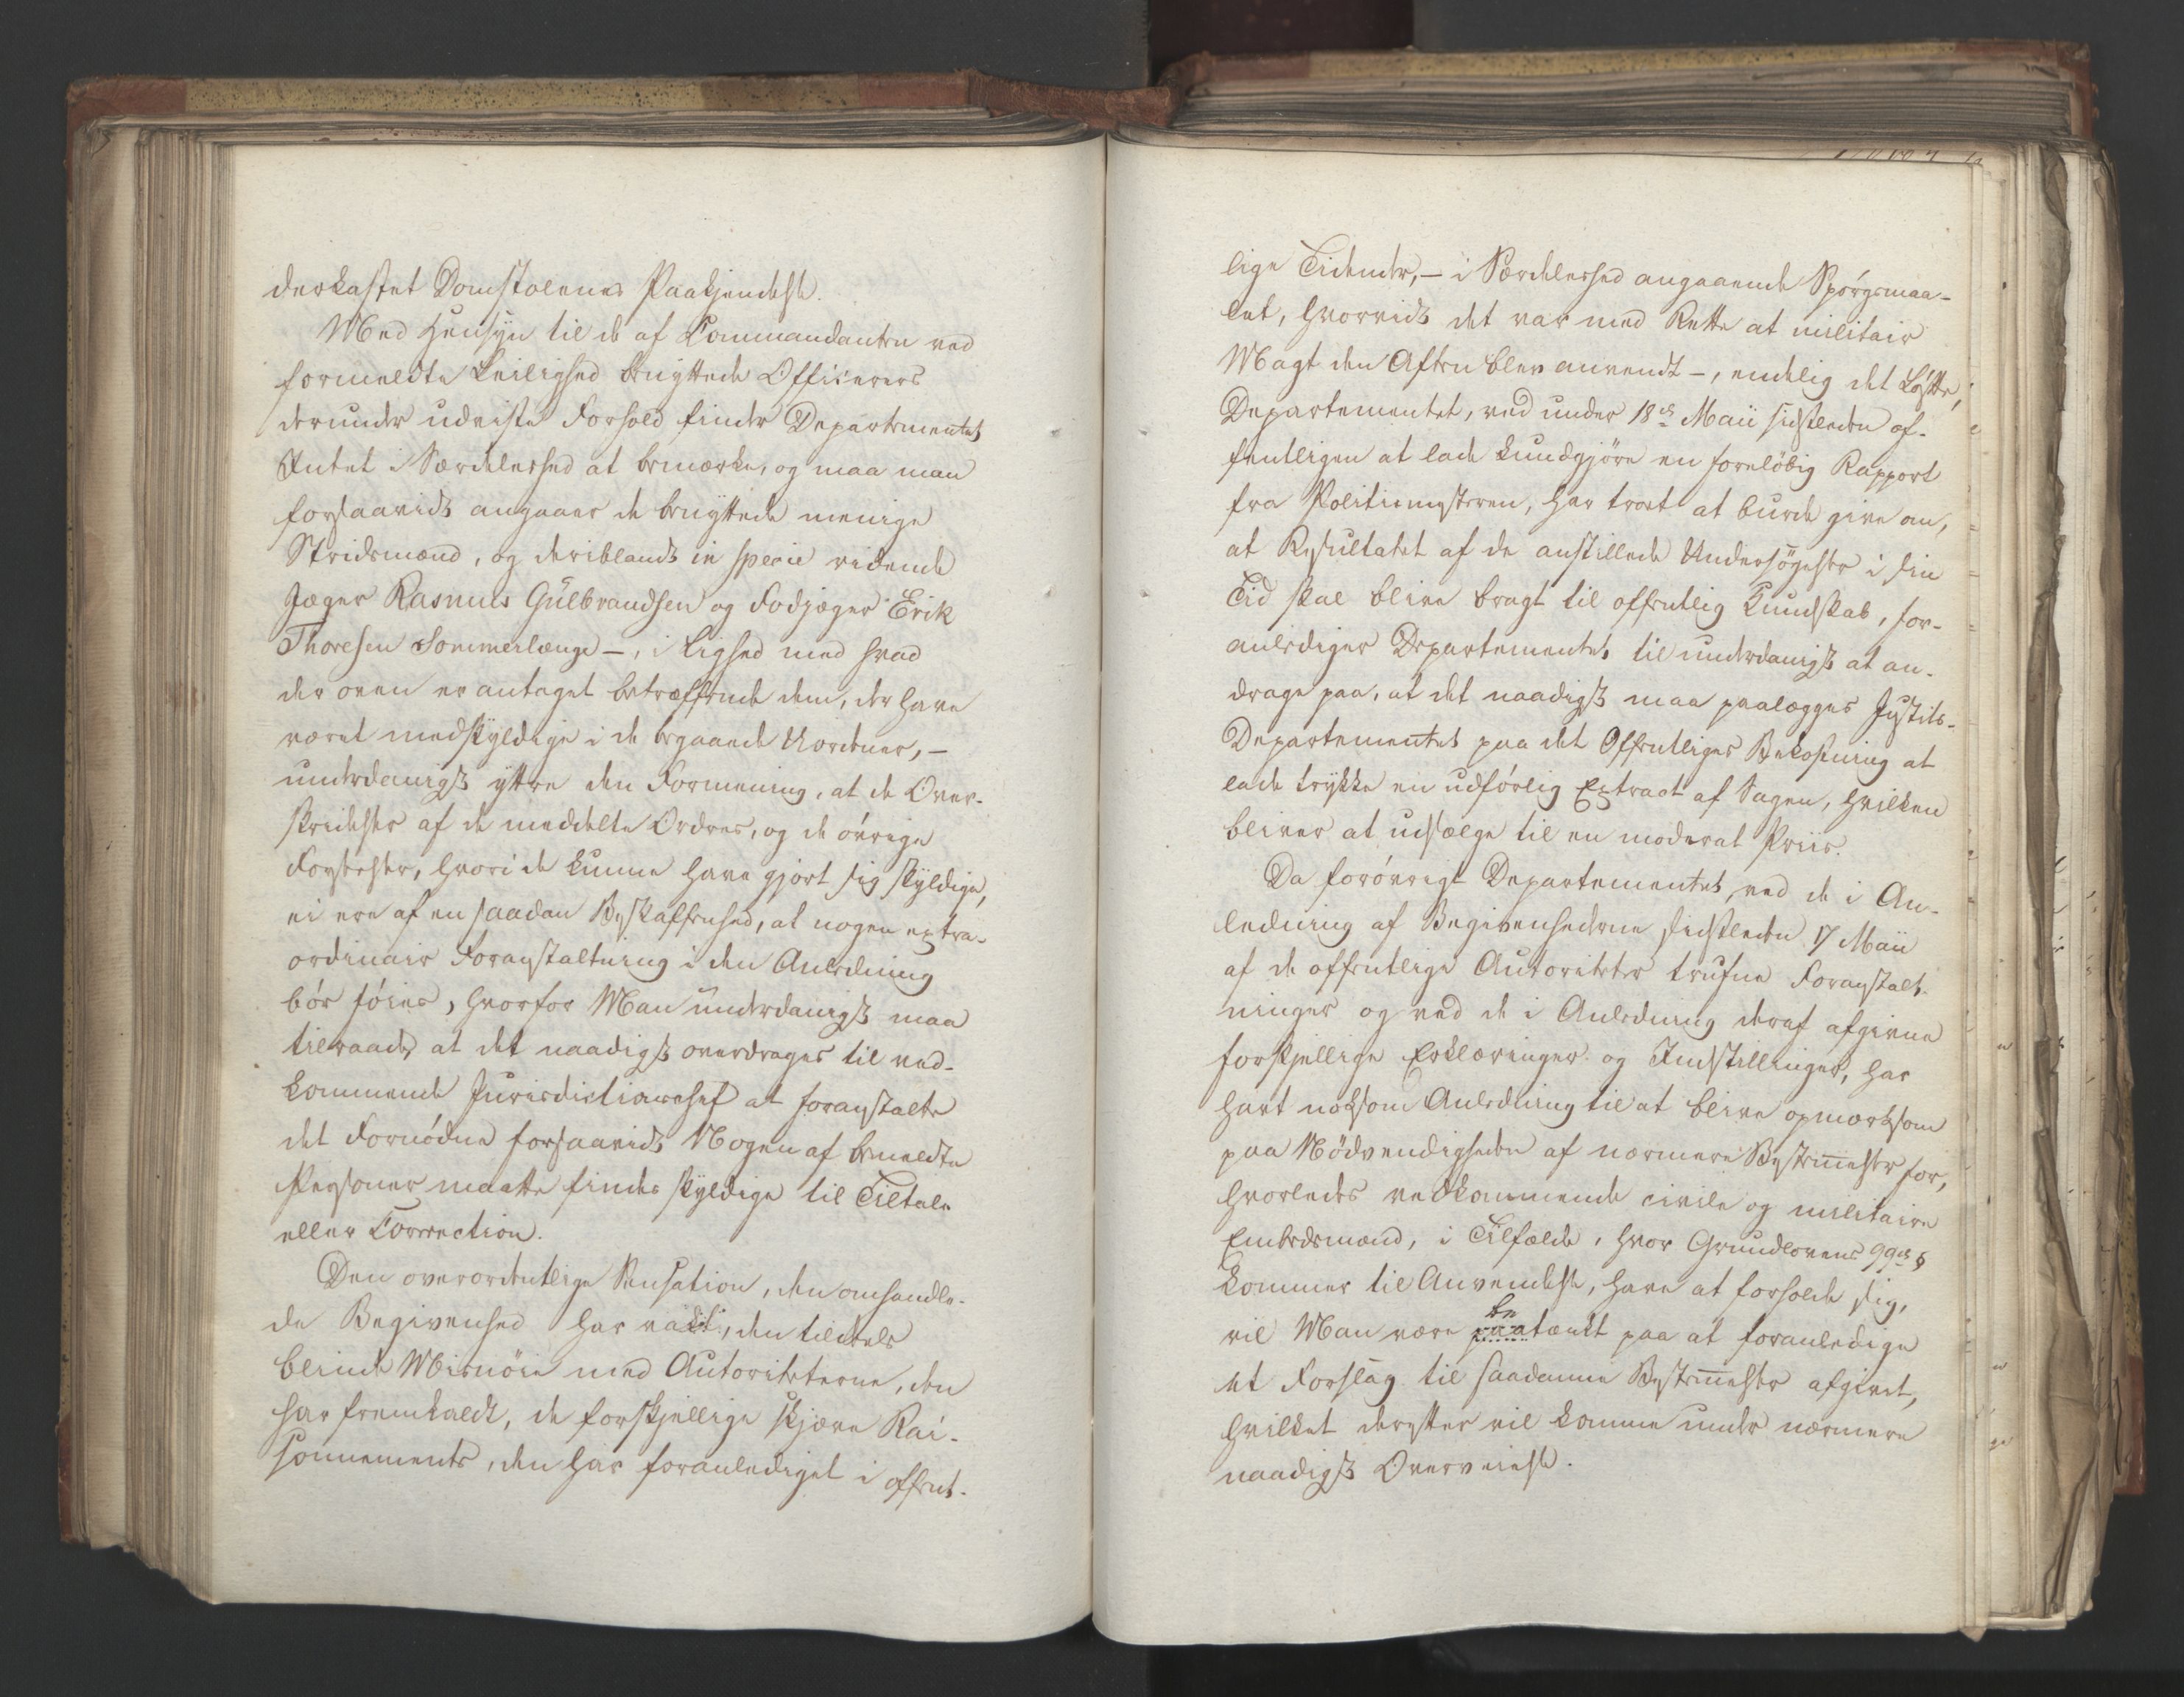 derkastet Domstolenes Paakjendelse.
Med Hensyn til de af Commandanten ved
formeldte Leilighed benyttede Officerers
derunder udviste Forhold finder Departementet
Intet i Særdeleshed at bemærke, og maa man
forsaavidt angaaer de benyttede menige
Stridsmænd, og deriblandt in specie ridende
Jæger Rasmus Gulbrandsen og Fodjæger Erik
Thoresen Sommerlænge —, i Lighed med hvad
der oven er antaget betræffende dem, der have
været medskyldige i de begaaede Uordener, —
underdanigst yttre den Formening, at de Over-
skridelser af de meddelte Ordres, og de øvrige
Forseelser, hvori de kunne have gjort sig skyldige,
ei ere af en saadan Beskaffenhed, at nogen extra-
ordinair Foranstaltning i den Anledning
bør føies, hvorfor Man underdanigst maa
tilraade, at det naadigst overdrages til ved-
kommende Jurisdictionschef at foranstalte
det Fornødne forsaavidt Nogen af bemeldte
Personer maatte findes skyldige til Tiltale
eller Correction.
Den overordentlige Sensation, den omhandle-
de Begivenhed har vakt, den tildeels
blinde Misnøie med Autoriteterne, den
har fremkaldt, de forskjellige skjæve Rai-
sonnements, den har foranlediget i offent-
lige Tidender, — i Særdeleshed angaaende Spørgsmaa-
let, hvorvidt det var med Rette at militair
Magt den Aften blev anvendt —, endelig det Løfte,
Departementet, ved under 18de Maii sidstleden of-
fentligen at lade kundgjøre en foreløbig Rapport
fra Politiemesteren, har troet at burde give om,
at Resultatet af de anstillede Undersøgelser i sin
Tid skal blive bragt til offentlig Kundskab, for-
anlediger Departementet til underdanigst at an-
drage paa, at det naadigst maa paalægges Justits-
Departementet paa det Offentliges Bekostning at
lade trykke en udførlig Extract af Sagen, hvilken
bliver at udsælge til en moderat Priis.
Da forøvrigt Departementet, ved de i An-
ledning af Begivenhederne sidstleden 17 Maii
af de offentlige Autoriteter trufne Foranstalt-
ninger og ved de i Anledning deraf afgivne
forskjellige Erklæringer og Indstillinger, har
havt noksom Anledning til at blive opmærksom
paa Nødvendigheden af nærmere Bestemmelser for,
hvorledes vedkommende civile og militaire
Embedsmænd, i Tilfælde, hvor Grundlovens 99de §
kommer til Anvendelse, have at forholde sig,
vil Man være paatænkt be paa at foranledige
et Forslag til saadanne Bestemmelser afgivet,
hvilket derefter vil komme under nærmere
naadigst Overveielse.